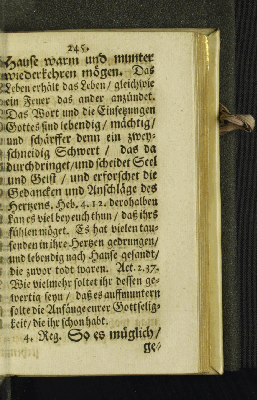 245.
Hause warm und munter
wiederkehren mögen. Das
Leben erhält das Leben / gleichwie
ein Feuer das ander anzündet.
Das Wort und die Einsetzungen
Gottes sind lebendig / mächtig /
und schärffer denn ein zwey-
schneidig Schwert / das da
durchdringet / und scheidet Seel
und Geist / und erforschet die
Gedancken und Anschläge des
Hertzens. Heb. 4. 12. derohalben
kan es viel bey euch thun / daß ihrs
fühlen möget. Es hat vielen tau-
senden in ihre Hertzen gedrungen /
und lebendig nach Hause gesandt /
die zuvor todt waren. Act. 2. 37.
Wie vielmehr soltet ihr dessen ge-
wertig seyn / daß es auffmuntern
solte die Anfänge eurer Gottselig-
keit / die ihr schon habt.
4. Reg. So es müglich /
ge-